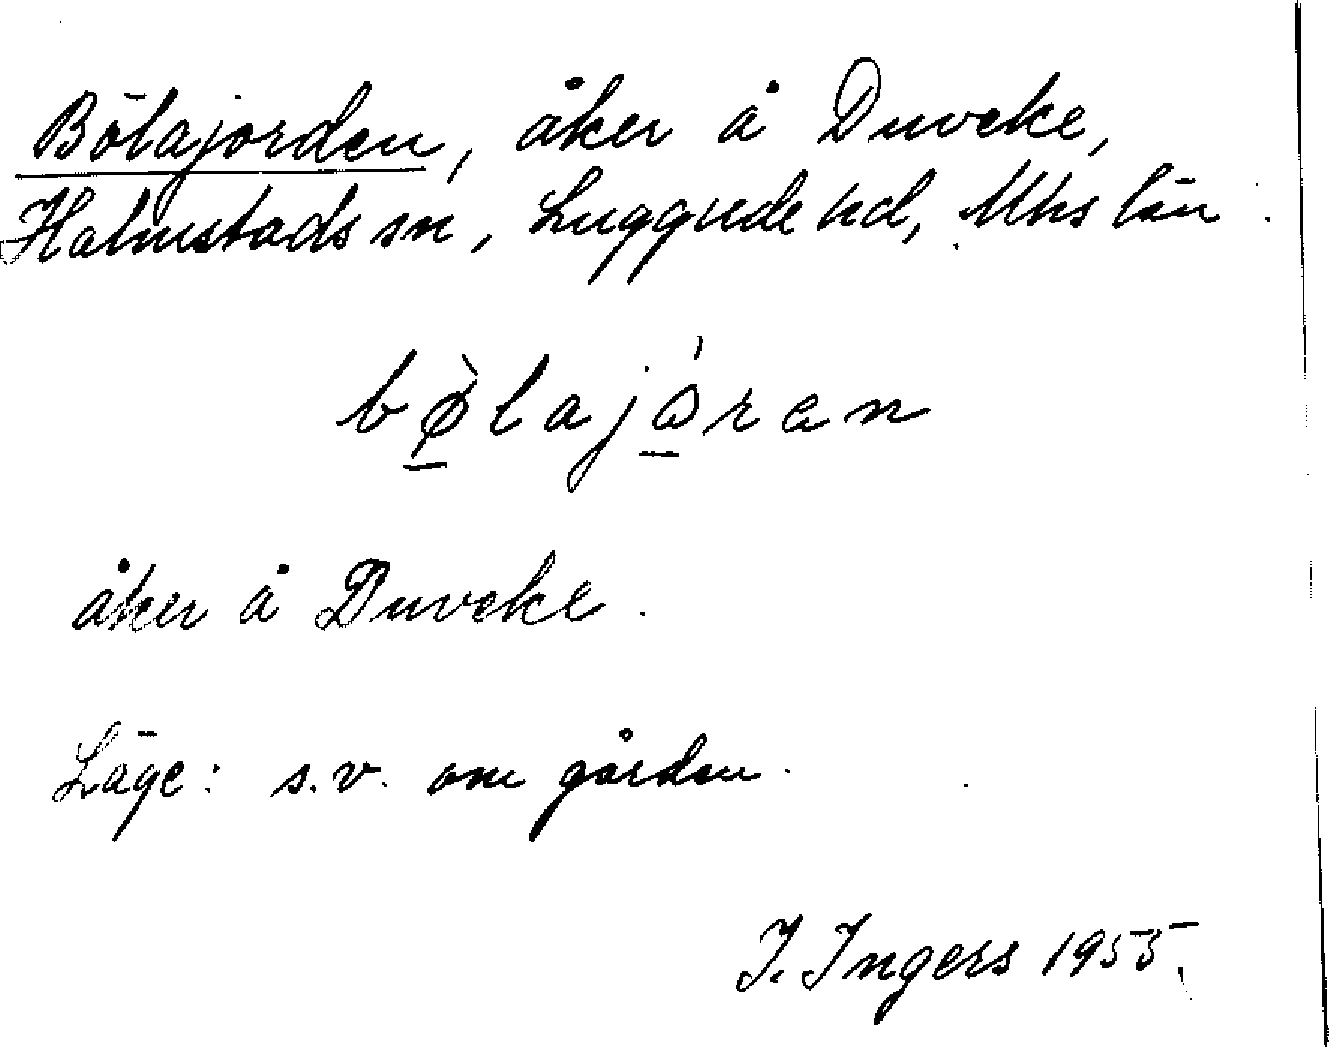 Bölajorden, åker å Duveke,
Halmstads sn, Luggude hd, Mhs län.
bø̀lajɷ́ren
åker å Duveke.
Läge: s.v. om gården.
I. Ingers 1955.